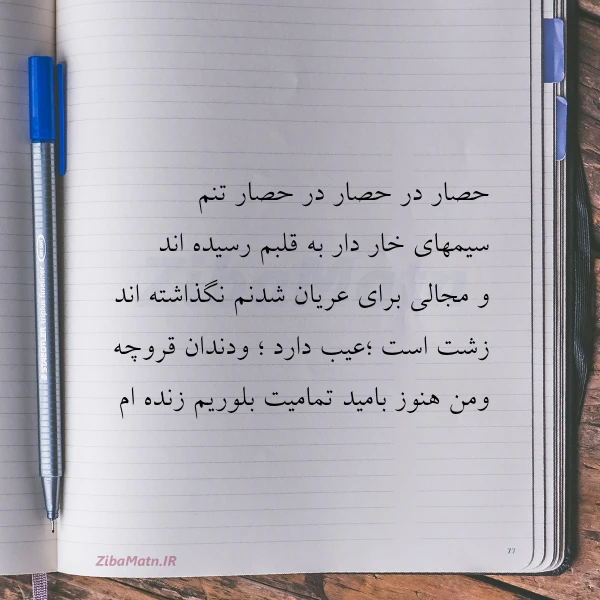 حصار در حصار در حصار تنم
سیمهای خار دار به قلبم رسیده اند
و مجالی برای عریان شدنم نگذاشته اند
زشت است ؛عیب دارد ؛ ودندان قروچه
ومن هنوز بامید تمامیت بلوریم زنده ام
ZibaMatn.IR